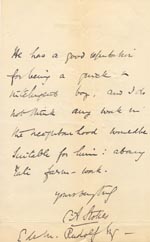 He has a good reputation
for being a quick &
intelligent boy, and I do
not think any work in
the neighbourhood would be
suitable for him: above
farm-work.
Yours very truly
E. de M. Rudolf Esq